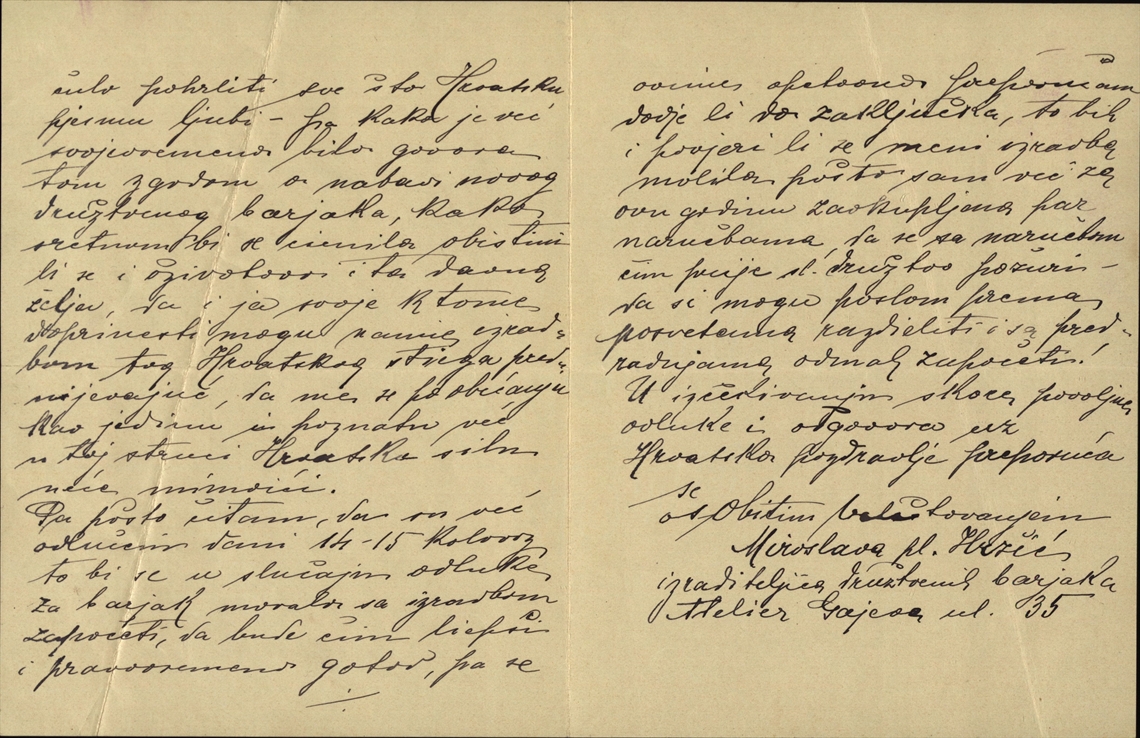 pohrliti sve što Hrvatsku
pjesmu ljubi – pa kako je već
svojevremeno bilo govora
tom zgodom o nabavi novog
družtvenog barjaka, kako
sretnom bi se cienila obistini
li se i oživotvori i ta davna
želja, da i ja svoje k tome
doprinesti mogu naime izrad-
bom tog Hrvatskog stiega pred-
mjevajuć, da me se po običaju
kao jedinu i poznatu već
u toj struci Hrvatsku silu
neće mimoići.
Pa pošto čitam, da su već
odlučeni dani 14–15 Kolovoz
to bi se u slučaju odluke
za barjak moralo sa izradbom
započeti, da bude čim liepši
i pravovremeno gotov, pa se
ovime opetovano preporučam
dodje li do zaključka, to bih
i povjeri li se meni izradba
molila pošto sam već za
ovu godinu zaokupljena par
naručbama, da se sa naručbom
čim prije sl. družtvo požuri –
da si mogu poslom prema
posvetama razdieliti i sa pred-
radnjama odmah započeti!
U izčekivanju skore povoljne
odluke i odgovora uz
Hrvatski pozdravlje preporuča
se
osobitim veleštovanjem
Miroslava pl. Hržić
izraditeljica družtvenih barjaka
Atelier Gajeva ul. 35